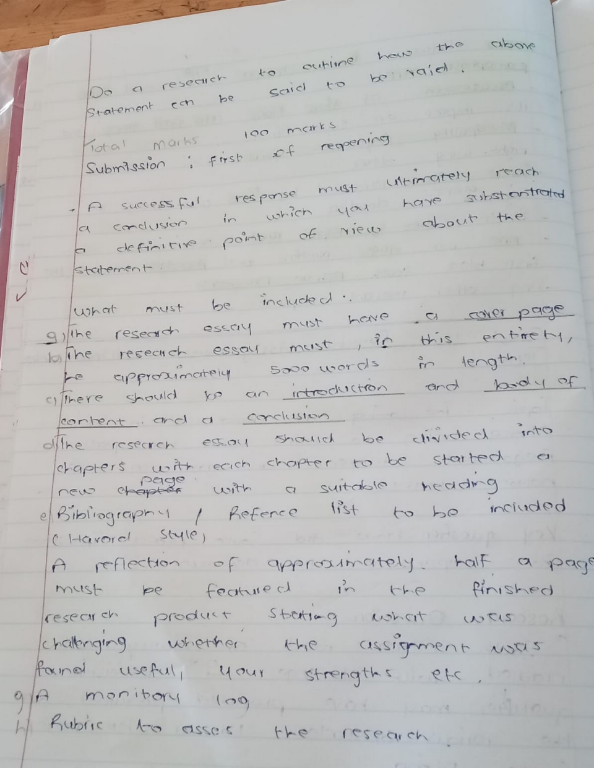 Do a research to outline how the above
statement can be said to be valid.
Total marks 100 marks
Submission : first of reopening
. A successful response must ultimately reach
a conclusion in which you have substantiated
a definitive point of view about the
statement
What must be included :.
a) The research essay must have a cover page
b) The research essay must, in this entirety,
be approximately 5000 words in length.
c) There should be an introduction and body of
content and a conclusion
d) The research essay should be divided into
chapters with each chapter to be started a
new page with a suitable heading
e Bibliography / Refence list to be included
(Havard Style)
A reflection of approximately half a page
must be featured in the finished
research product stating what was
challenging whether the assignment was
found useful, your strengths etc.
g) A monitory log
h) Rubric to asses the research.